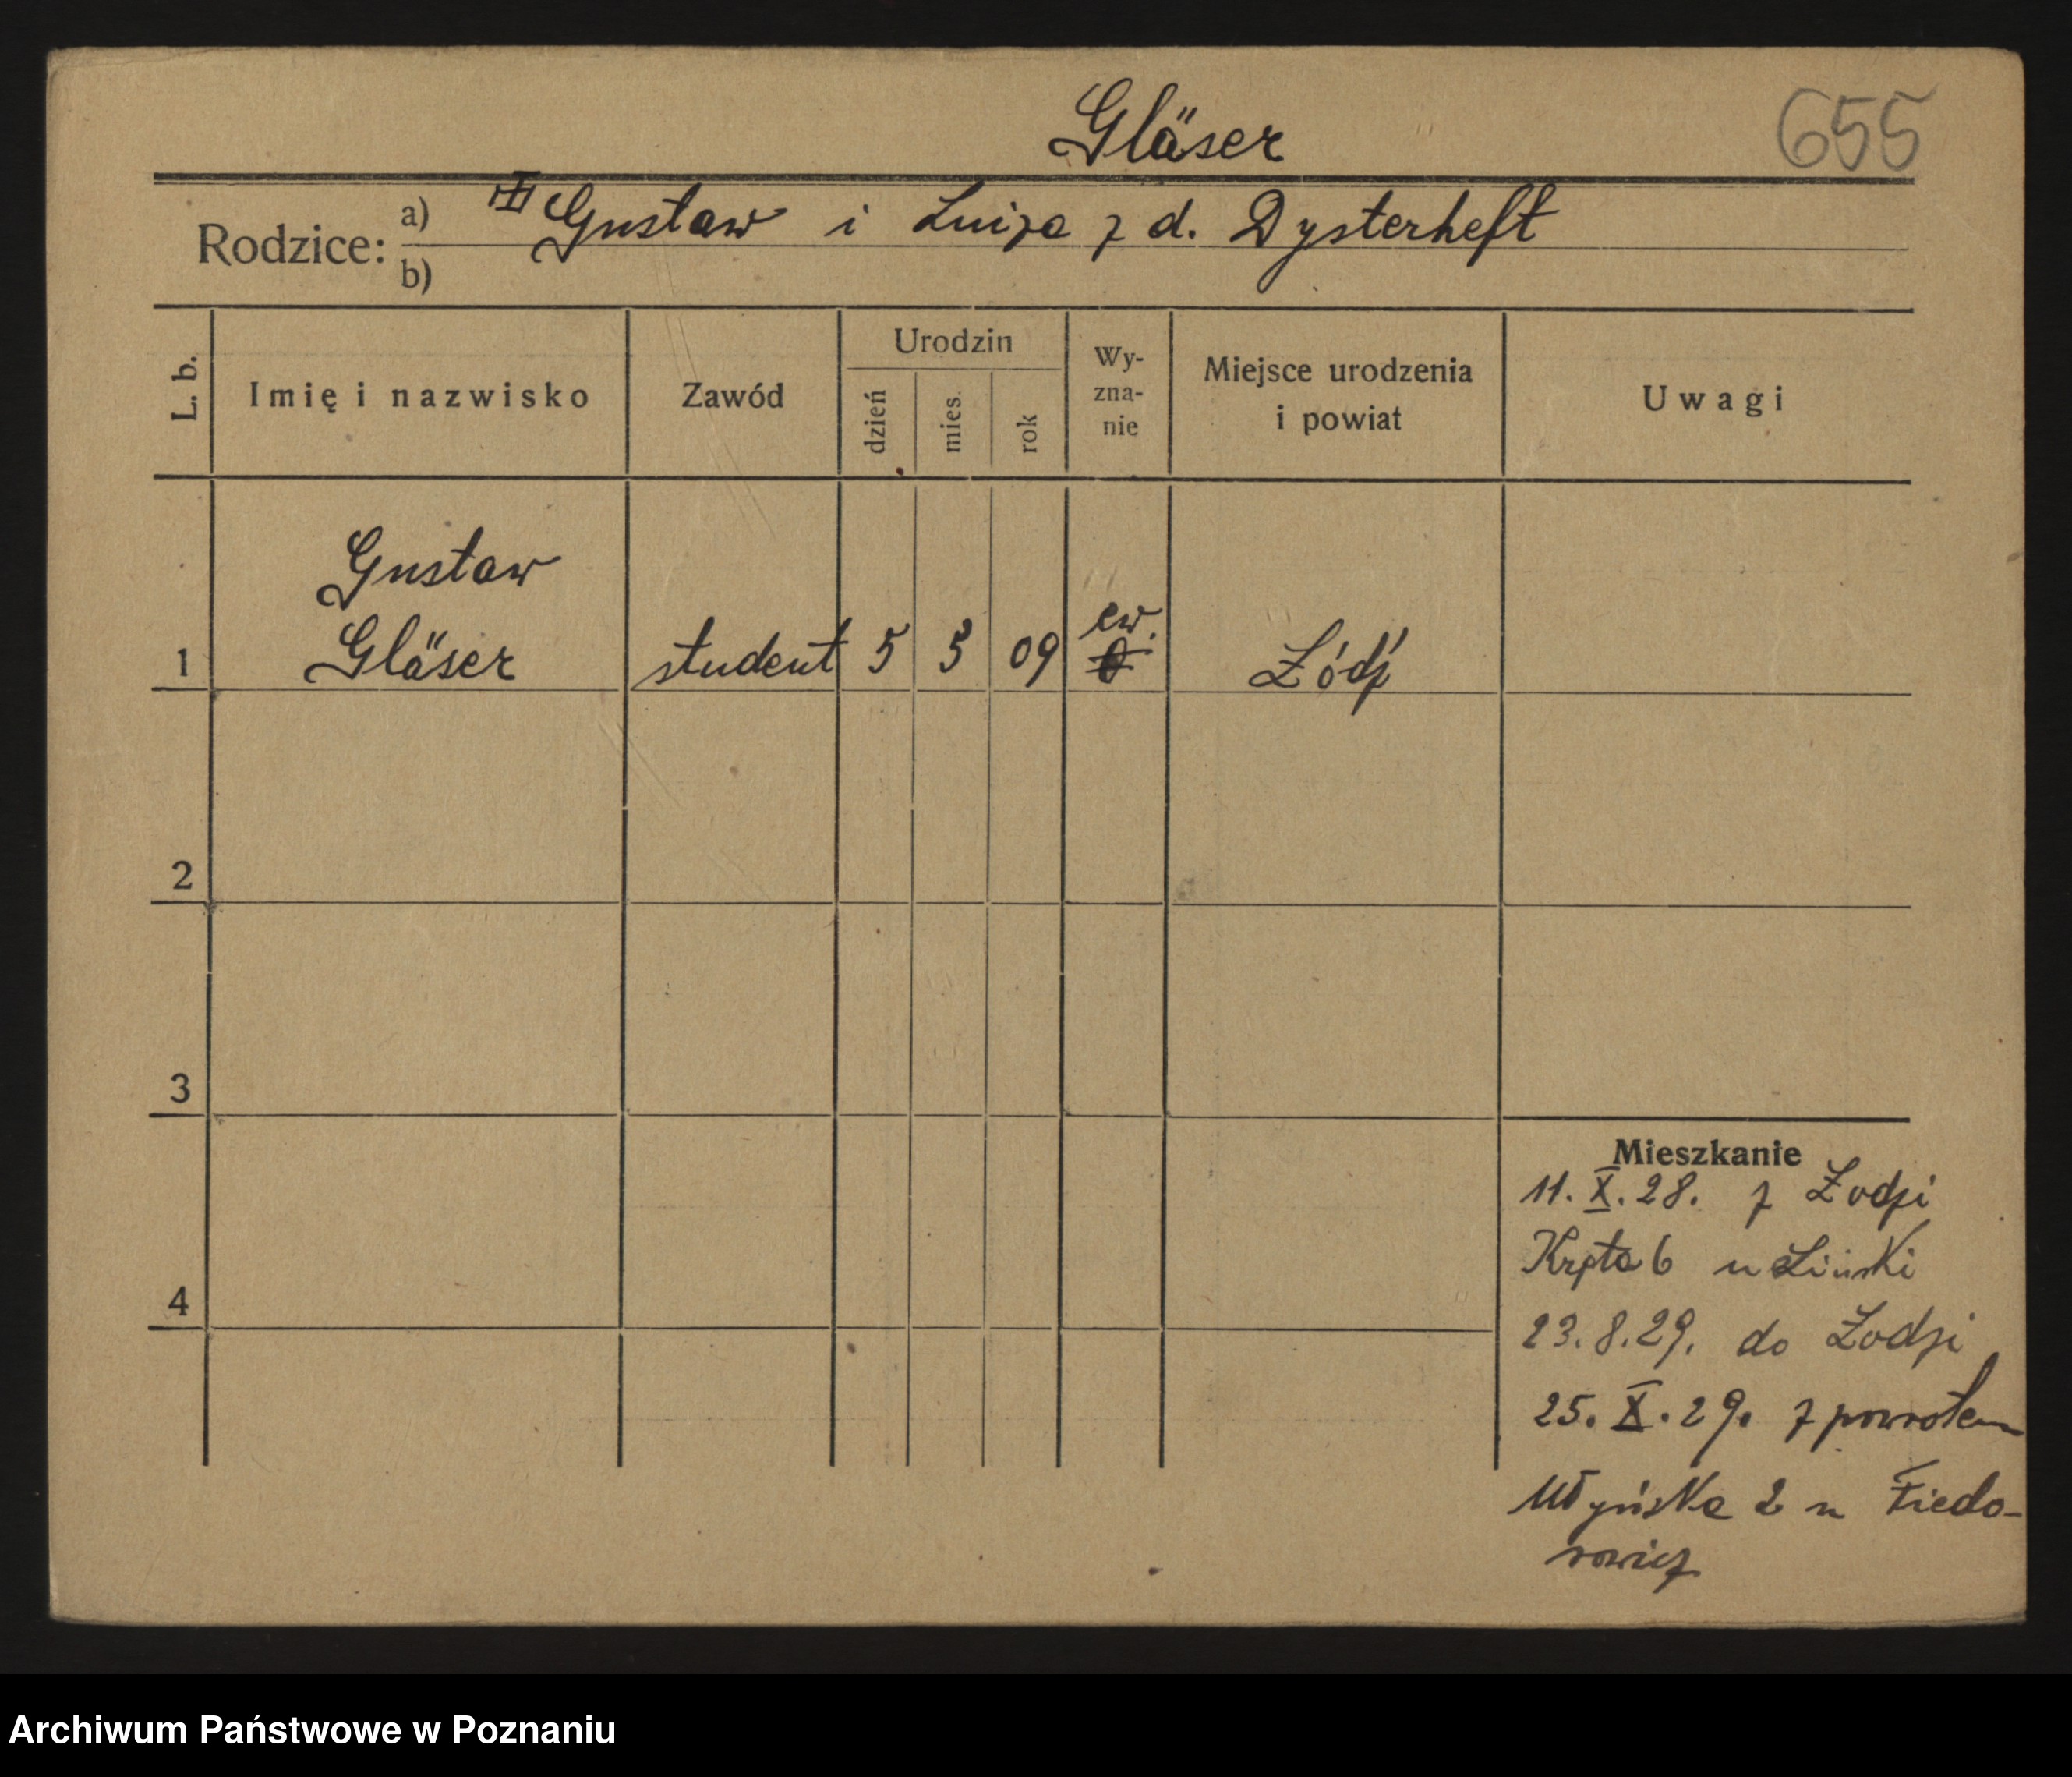 Gläser
655
Rodzice: a) Gustaw i Luiza z d. Dysterheft
b)
L. b.
Imię i nazwisko
Zawód
Urodzin
dzień
mies.
rok
Wy-
zna-
nie
Miejsce urodzenia
i powiat
Uwagi
Gustaw
ew.
1 Gläser student 5 3 09 Łódź
2
3
Mieszkanie
11. X. 28. z Łodzi
Kręta 6 u Liński
4
23. 8. 29. do Łodzi
25. X. 29. z powrotem
Młyńska 2 u Fiedo-
rowicz
Archiwum Państwowe w Poznaniu